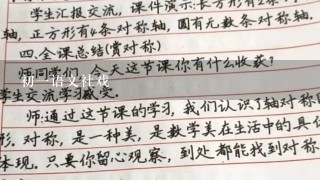 学生汇报交流,课件演示:长方形有2条
轴,正方形有4条对称轴,圆有无数条对称轴.
四.全课总结(赏对称)
师:同学们,今天这节课你有什么收获?
初一语文社戏
学生交流学习感受.
师:通过这节课的学习,我们认识了轴对称
形.对称,是一种美,是数学美在生活中的具
体现.只要你留心观察,到处都能找到对称